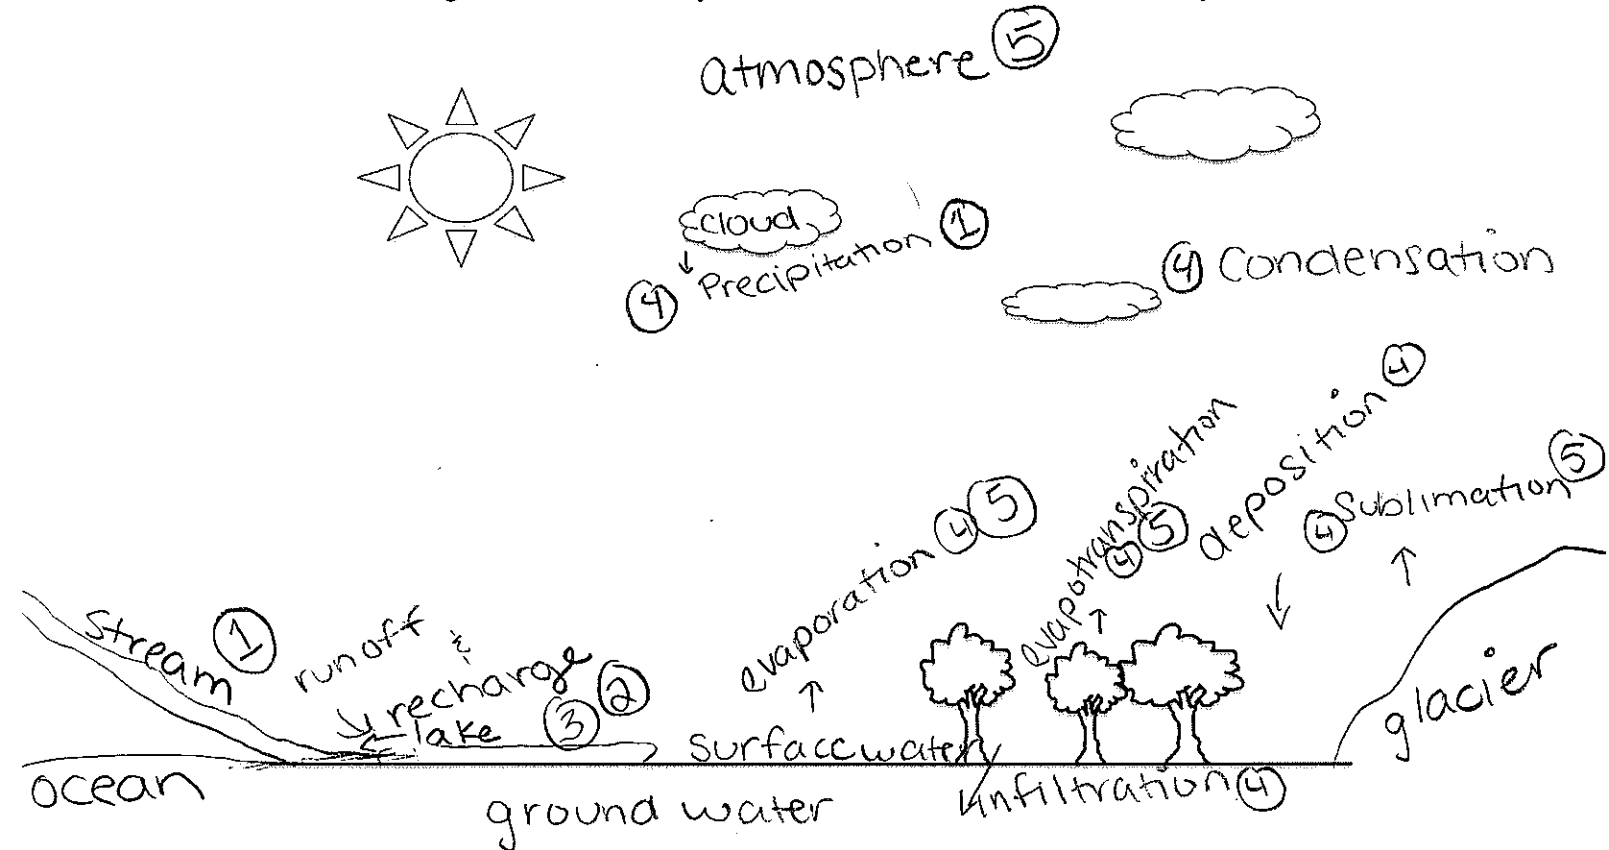 atmosphere 5
cloud
Precipitation 1
4
4 Condensation
deposition 4
evapotranspiration
4 5
4 Sublimation 5
evaporation 4 5
Stream 1
runoff
&
recharge 2
lake 3
surfacewater
glacier
ocean
ground water
infiltration 4